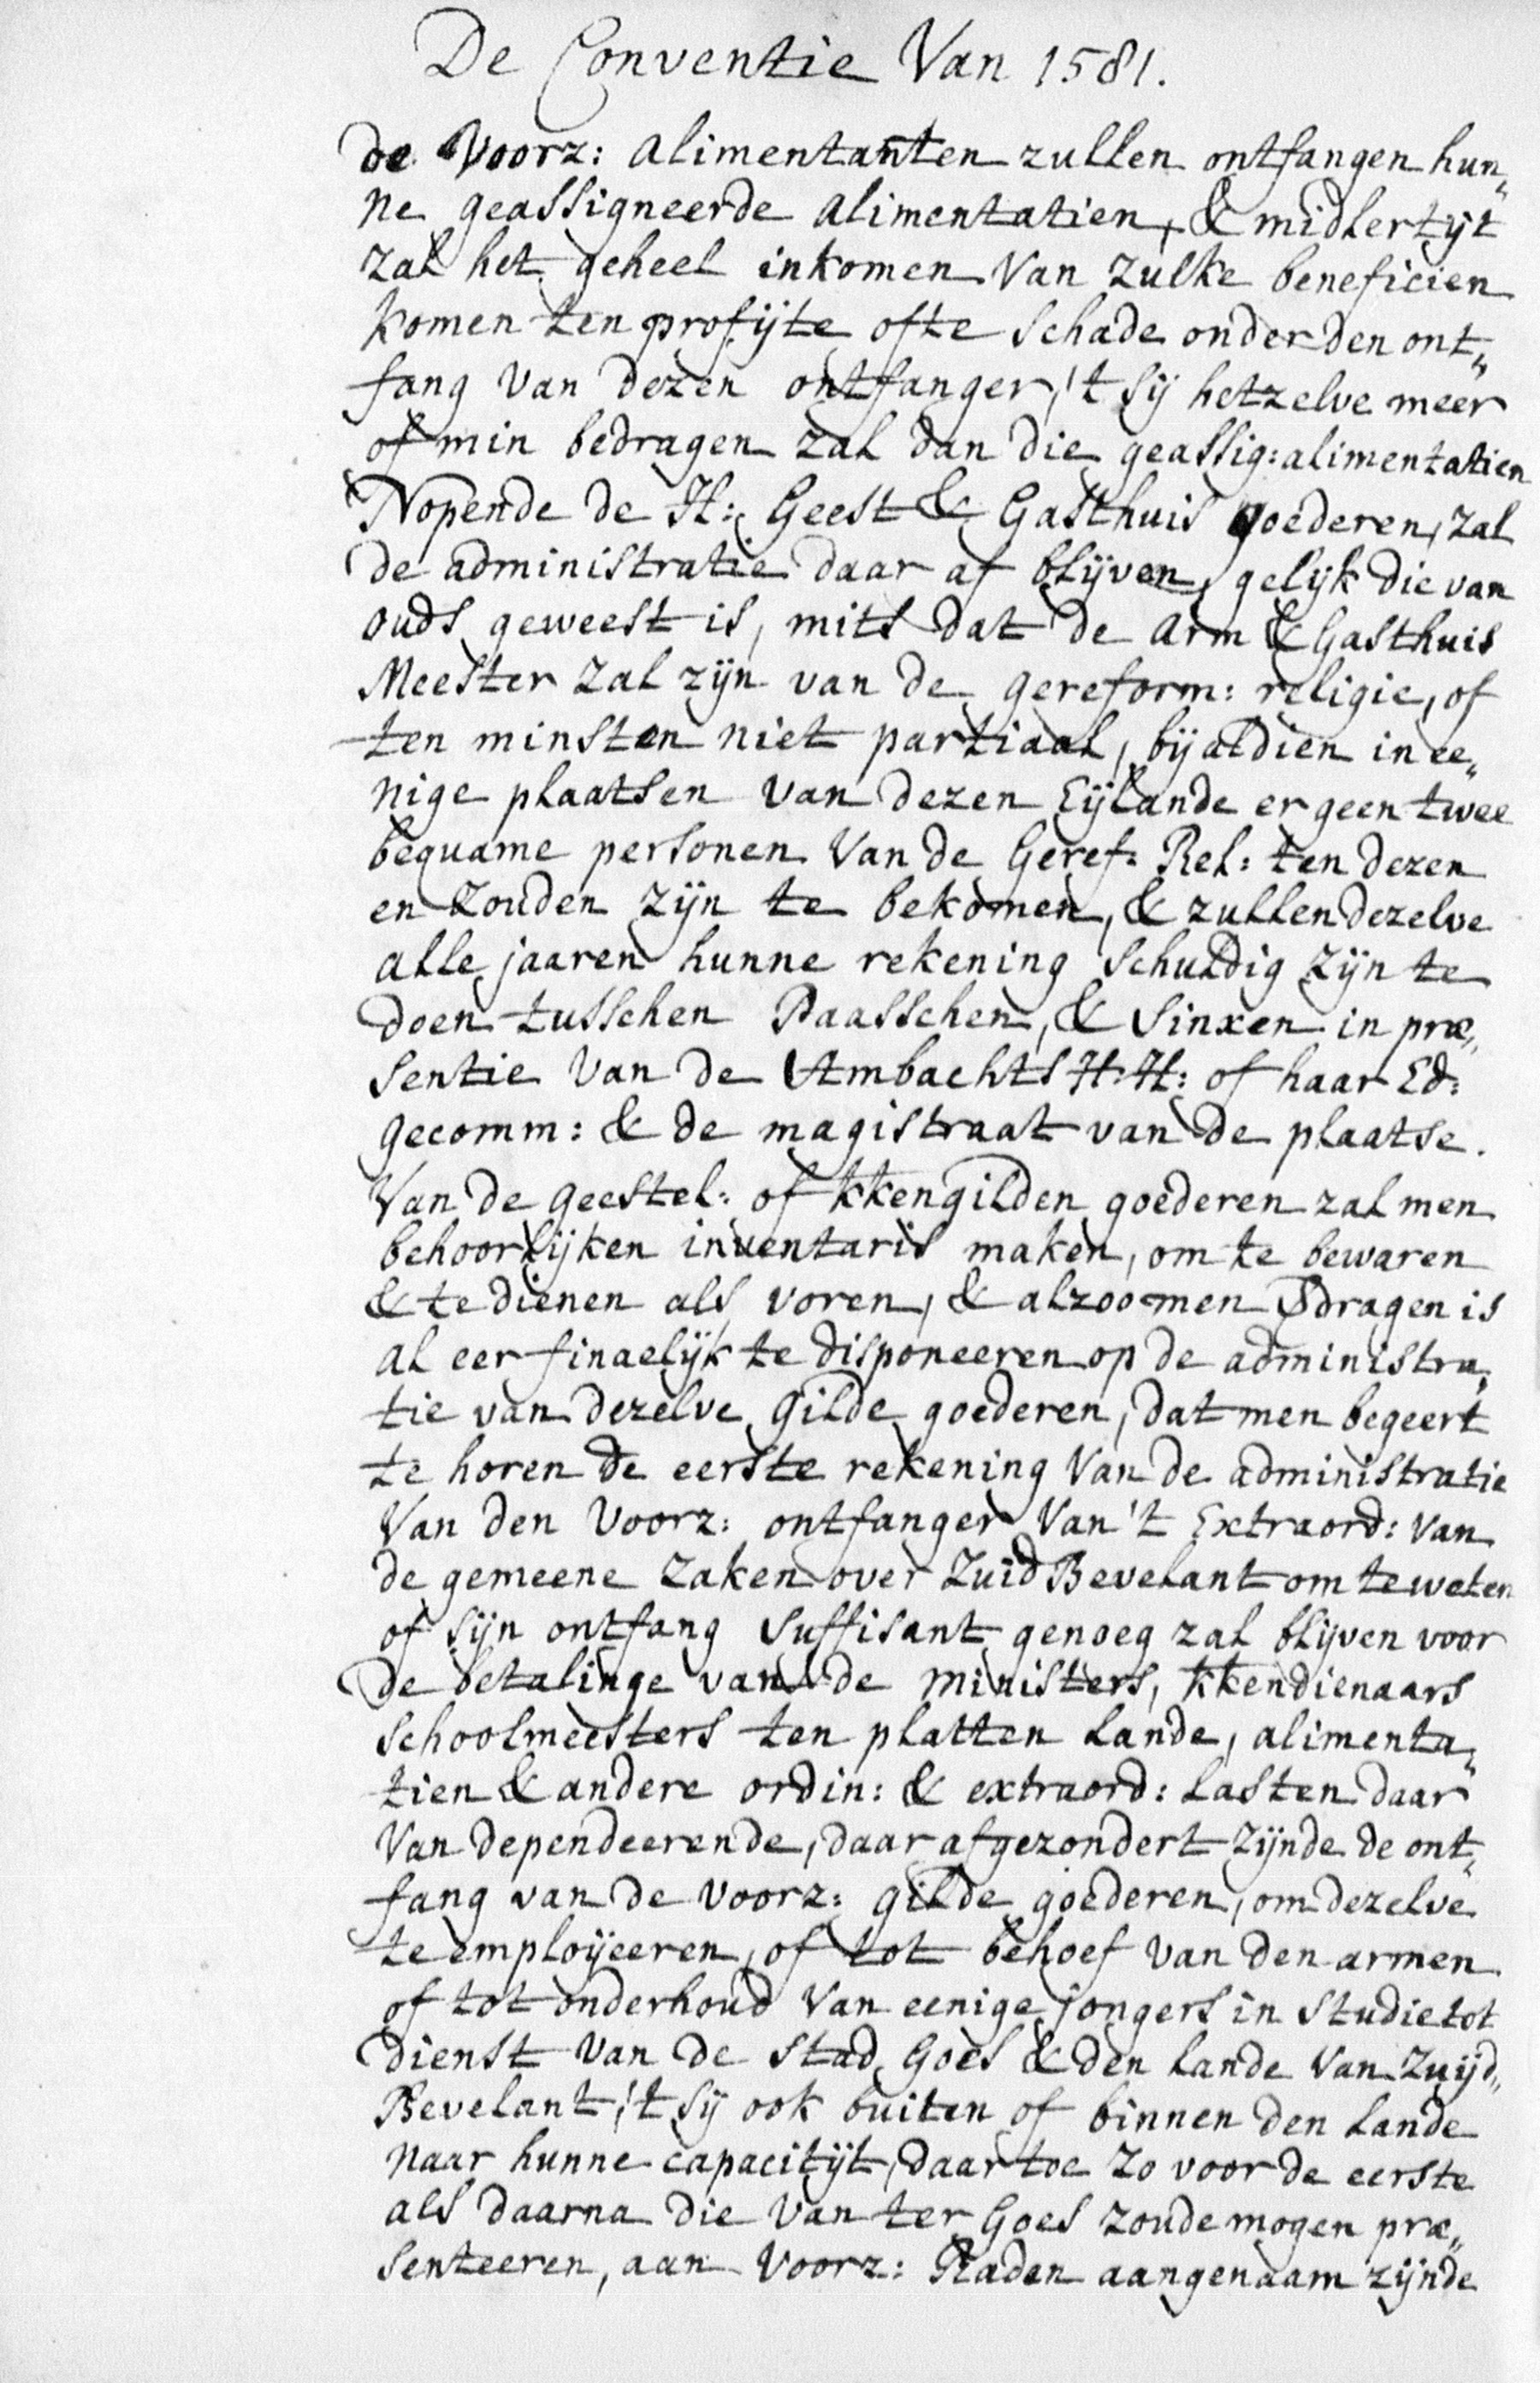 De Conventie Van 1581.
de Voorz: alimentanten zullen ontfangen hun„
ne geassigneerde alimentatien, & midlertijt
zal het geheel inkomen Van zulke beneficien
komen ten profijte ofte schade onder den ont„
fang van dezen ontfanger, 't sij hetzelve meer
of min bedragen zal dan die geassig: alimentatien
Nopende de H: Geest & Gasthuis goederen, zal
de administratie daar af blijven, gelijk die van
ouds geweest is, mits dat de Arm & Gasthuis
Meester zal zijn van de gereform: religie, of
ten minsten niet partiaal, bij aldien in ee„
nige plaatsen van dezen Eijlande er geen twee
bequame personen Van de Geref: Rel: ten dezen
en zouden zijn te bekomen, & zullen dezelve
alle jaaren hunne rekening schuldig zijn te
doen tusschen Paasschen, & Sinxen in præ„
sentie Van de Ambachts H:H: of haar Ed:
gecomm: & de magistraat van de plaatse.
Van de geestel: of kkengilden goederen zal men
behoorlijken inventaris maken, om te bewaren
& te dienen als voren, & alzoo men dragen is
al eer finaelijk te disponeeren op de administra„
tie van dezelve Gilde goederen, dat men begeert
te horen de eerste rekening Van de administratie
Van den Voorz: ontfanger Van 't Extraord: Van
de gemeene zaken over Zuid Bevelant om te weten
of sijn ontfang suffisant genoeg zal blijven voor
de betalinge van de ministers, kkendienaars
schoolmeesters ten platten Lande, alimenta„
tien & andere ordin: & extraord: Lasten daar
Van dependeerende, daar afgezondert zijnde de ont„
fang van de Voorz: gilde goederen, om dezelve
te emploijeeren, of tot behoef van den armen
of tot onderhoud Van eenige jongers in studie tot
dienst Van de stad Goes & den Lande Van Zuijd„
Bevelant, 't sij ook buiten of binnen den Lande
naar hunne capacitijt, daar toe zo voor de eerste
als daarna die Van ter Goes zoude mogen præ„
senteeren, aan Voorz: Raden aangenaam zijnde